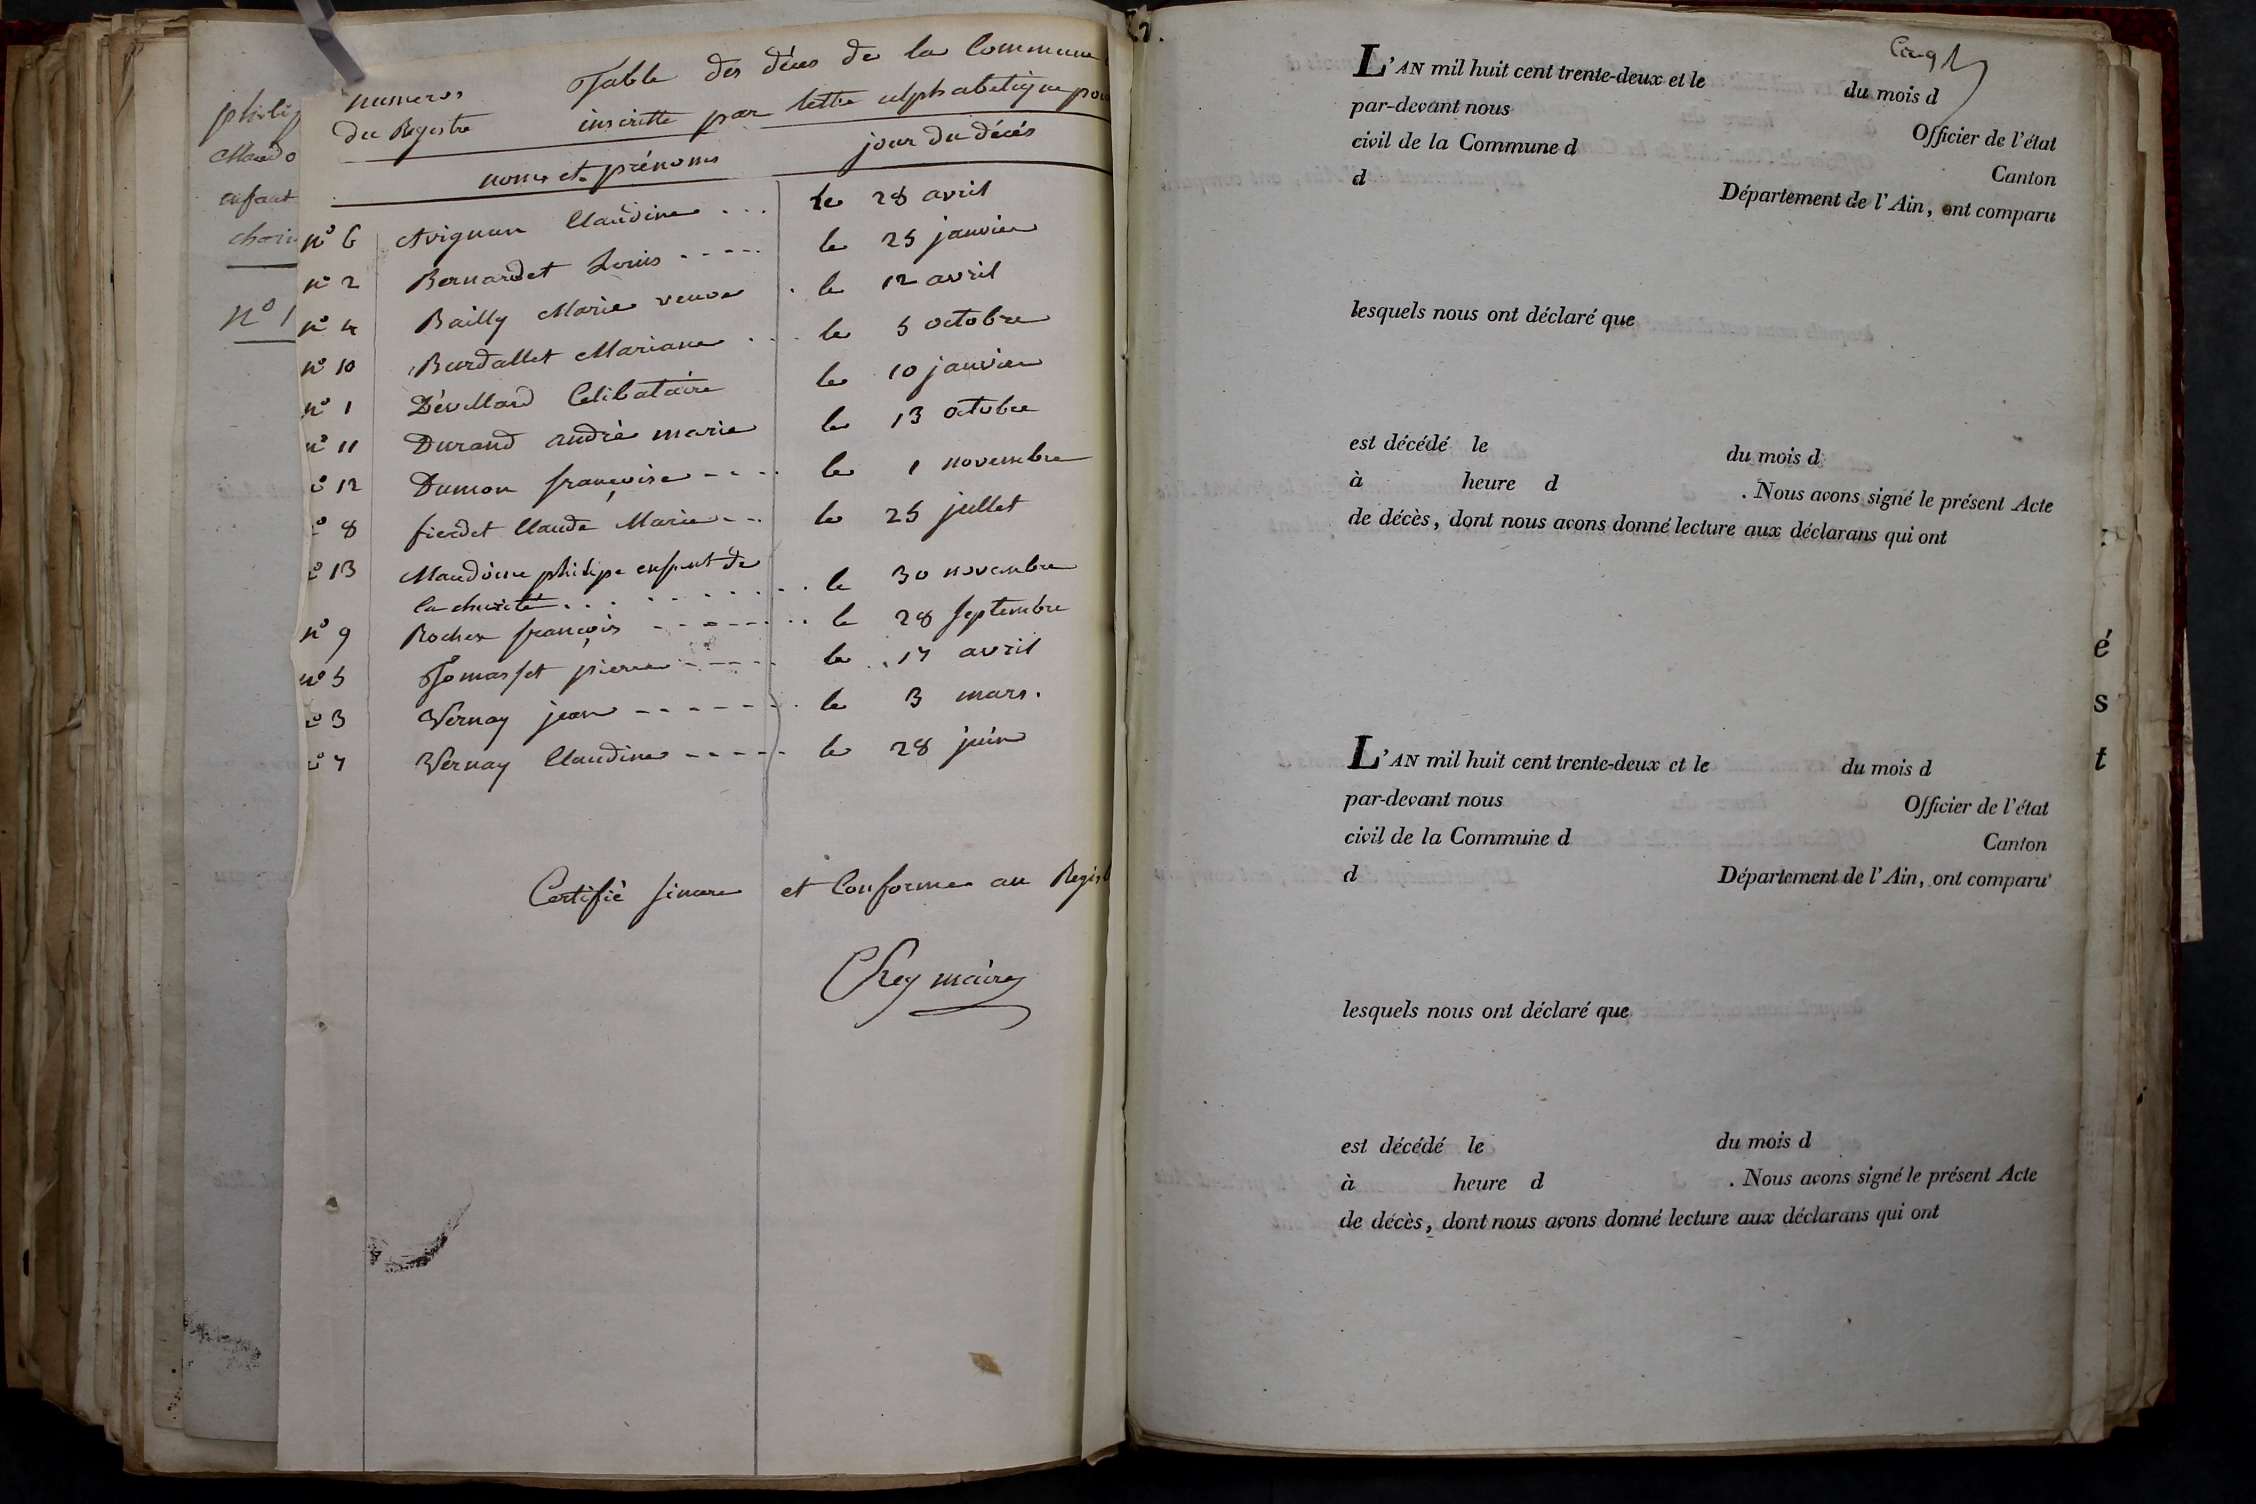 philip
Mando
enfant
n° 1
numeros Table des décès de la Commune
du Registre inscritte par lettre alphabetique pour
noms et prénoms jour du décès
n° 6 Avignon Claudine . . . le 28 avril
n° 2 Bernardet Louis - - - - - le 25 janvier
n° 4 Bailly Marie veuve . le 12 avril
n° 10 Burdallet Mariane . . . le 5 octobre
n° 1 Dévillard Celibataire le 10 janvier
n° 11 Durand andré marie le 13 octobre
n° 12 Dumon françoise - - - - le 1 novembre
n° 8 fierdet Claude Marie - - - le 25 jullet
n° 13 Maudoine philipe enfant de
la charité . . . . . . . . . le 30 novembre
n° 9 Rocher françois - - - - - - . . le 28 septembre
n° 5 Tomasset pierre - - - - - le 17 avril
n° 3 Vernay jean - - - - - - - le 3 mars.
n° 7 Vernay Claudine - - - - - le 28 juin
Certifié sincere et Conforme au Regist
Rey maire
Cinq
L'AN mil huit cent trente-deux et le du mois d
par-devant nous Officier de l'état
civil de la Commune d Canton
d Département de l'Ain, ont comparu
lesquels nous ont déclaré que
est décédé le du mois d
à heure d . Nous avons signé le présent Acte
de décès, dont nous avons donné lecture aux déclarans qui ont
L'AN mil huit cent trente-deux et le du mois d
par-devant nous Officier de l'état
civil de la Commune d Canton
d Département de l'Ain, ont comparu
lesquels nous ont déclaré que
est décédé le du mois d
à heure d . Nous avons signé le présent Acte
de décès, dont nous avons donné lecture aux déclarans qui ont
é
s
t